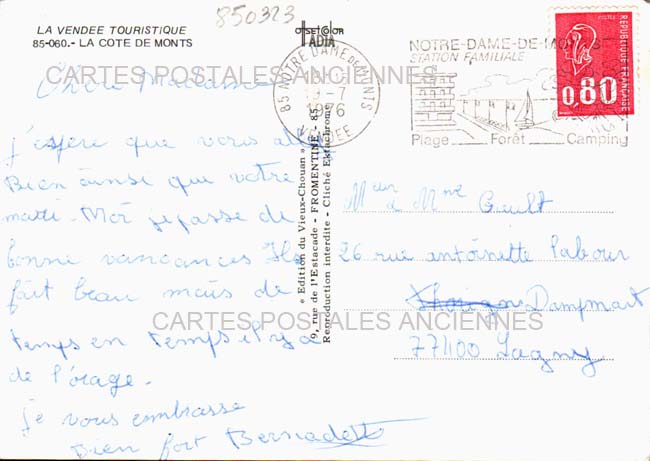 850323
LA VENDEE TOURISTIQUE
85-060.- LA COTE DE MONTS
OFFSET COLOR
IADIA
CARTES POSTALES ANCIENNES
Chère Madame
j'espère que vous allez
Bien ainsi que votre
matti. Moi je passe de
bonne vancances Il
fait beau mais de
temps en temps il y a
de l'orage.
je vous embrasse
Bien fort Bernadette
« Edition du Vieux-Chouan »
9, rue de l'Estacade - FROMENTINE - 85
Reproduction interdite - Cliché Ektachrome
85 NOTRE DAME DE MONTS
-7
1976
VENDEE
NOTRE-DAME-DE-MONTS
STATION FAMILIALE
Plage Forêt Camping
POSTES
REPUBLIQUE FRANÇAISE
0,80
Meur & Mme
26 rue antoinette Labour
Dampmart
77400 Lagny
CARTES POSTALES ANCIENNES